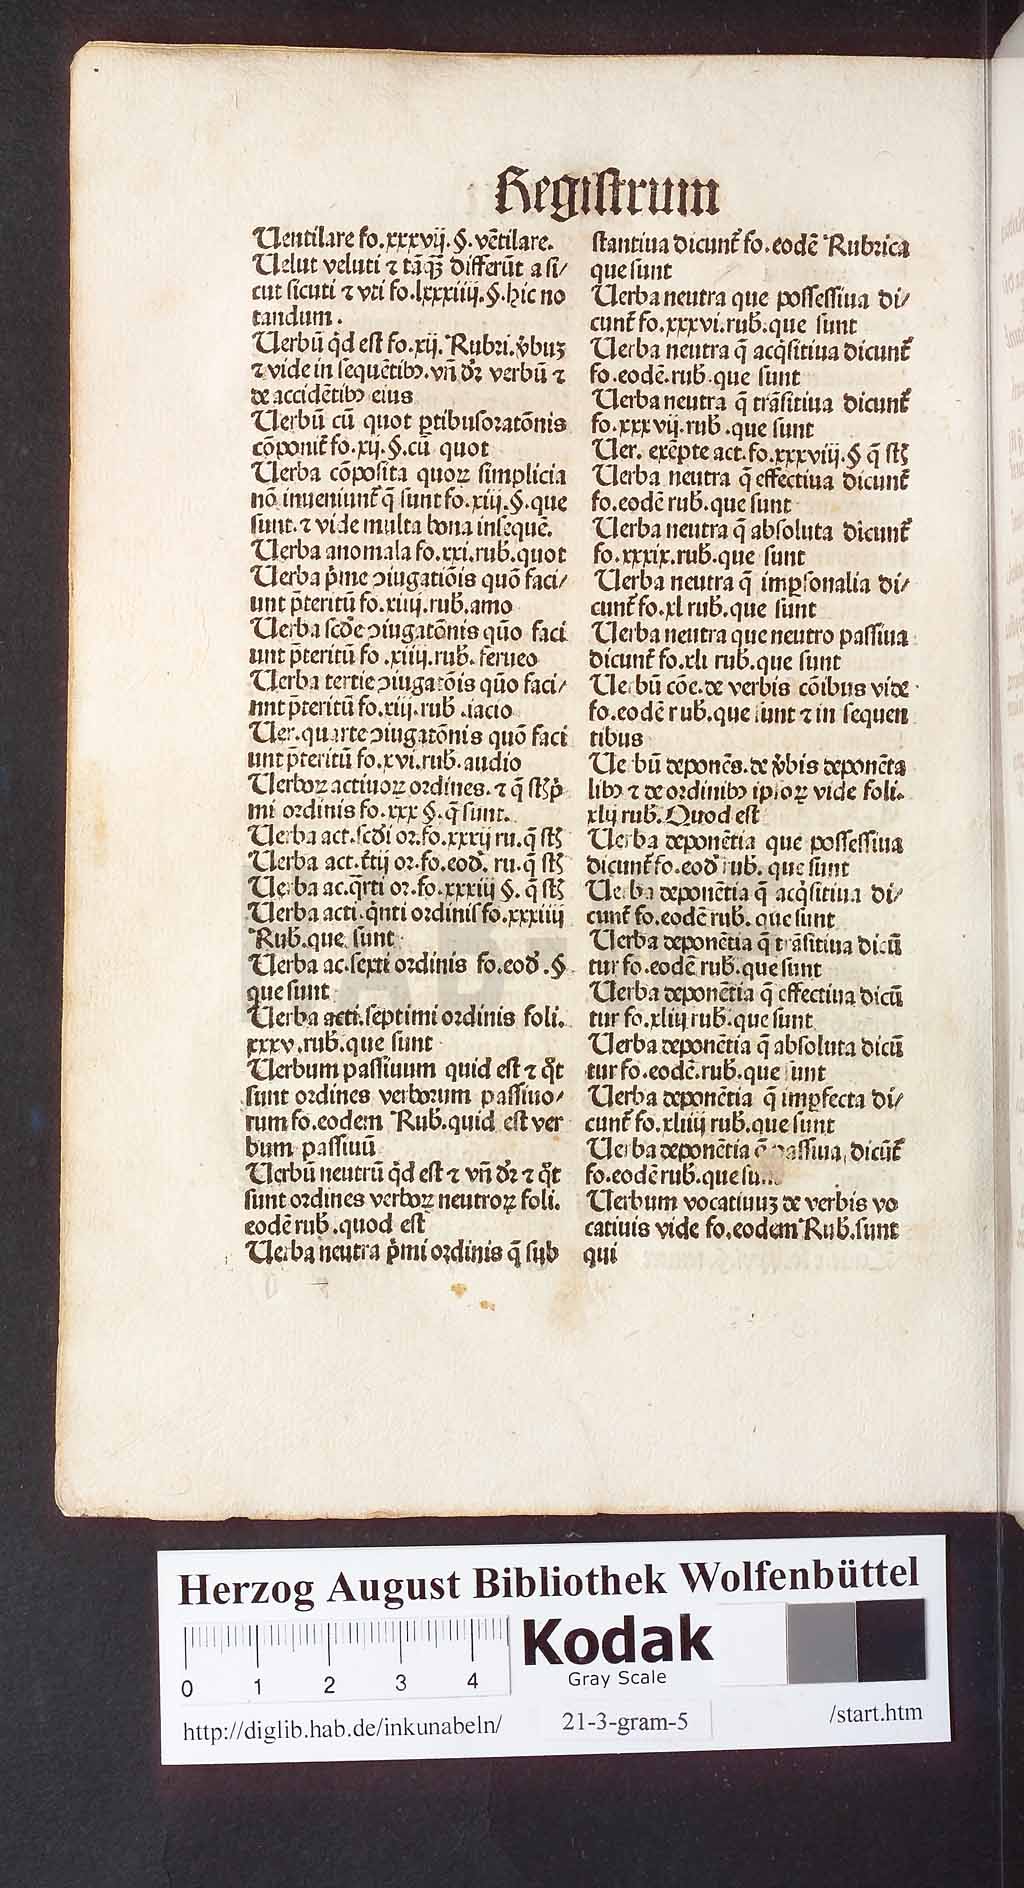 Registrum
Uentilare fo.xxxvij.§.vētilare.
Uelut veluti ⁊ tāqȝ differūt a si/
cut sicuti ⁊ vti fo.lxxxiiij.§.hic no
tandum.
Uerbū qͥd est fo.xij. Rubri.v̓buȝ
⁊ vide in sequētibꝰ.vñ dꝛ̄ verbū ⁊
de accidētibꝰ eius
Uerbū cū quot ꝑtibusoratōnis
cōponit᷑ fo.xij.§.cū quot
Uerba cōposita quoꝝ simplicia
nō inueniunt᷑ q̄ sunt fo.xiij.§.que
sunt.⁊ vide multa bona insequē.
Uerba anomala fo.xxi.rub̕.quot
Uerba pͥme ↄiugatiōis quō faci/
unt p̄teritū fo.xiiij.rub̕.amo
Uerba scd̕e ↄiugatōnis qūo faci
unt p̄teritū fo .xiiij.rub̕. ferueo
Uerba tertie ↄiugatōis qūo faci/
unt p̄teritū fo.xiiij.rub .iacio
Uer.quarte ↄiugatōnis quō faci
unt p̄teritū fo.xvi.rub̕.audio
Uerboꝝ actiuoꝝ ordines.⁊ q̄ st̄ȝ pͥ
mi ordinis fo.xxx §.q̄ sunt.
Uerba act.scd̕i or.fo.xxxij ru.q̄ st̄ȝ
Uerba act.t̄tij or.fo.eod̕. ru.q̄ st̄ȝ
Uerba ac.q̄rti or.fo.xxxiij §. q̄ st̄ȝ
Uerba acti.qͥnti ordinis fo.xxxiiij
Rub̕.que sunt
Uerba ac.sexti ordinis fo.eod̕ .§
que sunt
Uerba acti.septimi ordinis foli.
xxxv.rub̕.que sunt
Uerbum passiuum quid est ⁊ qͦt
sunt ordines verborum passiuo/
rum fo.eodem Rub̕.quid est ver
bum passiuū
Uerbū neutrū qͥd est ⁊ vñ dꝛ̄ ⁊ qͦt
sunt ordines verboꝝ neutroꝝ foli.
eodē rub̕.quod est
Uerba neutra pͥmi ordinis q̄ sub
stantiua dicunt᷑ fo.eodē Rubrica
que sunt
Uerba neutra que possessiua di/
cunt᷑ fo.xxxvi.rub̕.que sunt
Uerba neutra q̄ acqͥsitiua dicunt᷑
fo.eodē.rub̕.que sunt
Uerba neutra q̄ trāsitiua dicunt᷑
fo.xxxvij.rub̕.que sunt
Uer. exēpte act.fo.xxxviij.§ q̄ st̄ȝ
Uerba neutra q̄ effectiua dicunt᷑
fo.eodē rub̕.que sunt
Uerba neutra q̄ absoluta dicunt᷑
fo.xxxix.rub̕.que sunt
Uerba neutra q̄ impsonalia di/
cunt᷑ fo.xl rub̕.que sunt
Uerba neutra que neutro passiua
dicunt᷑ fo.xli rub̕.que sunt
Uerbū cōe.de verbis cōibus vide
fo.eodē rub̕.que sunt ⁊ in sequen
tibus
Uerbū deponēs.de v̓bis deponēta
libꝰ ⁊ de ordinibꝰ ipsoꝝ vide foli.
xlij rub̕. Quod est
Uerba deponētia que possessiua
dicunt᷑ fo.eod̕ rub̕. que sunt
Uerba deponētia q̄ acqͥsitiua di/
cunt᷑ fo.eodē rub̕. que sunt
Uerba deponētia q̄ trāsitiua dicū
tur fo.eodē rub̕.que sunt
Uerba deponētia q̄ effectiua dicū
tur fo.xliij rub̕.que sunt
Uerba deponētia q̄ absoluta dicū
tur fo.eodē.rub̕.que sunt
Uerba deponētia q̄ impfecta di/
cunt᷑ fo.xliiij rub̕.que sunt
Uerba deponētia q̄ passiua dicūt᷑
fo.eodē rub̕.que
Uerbum vocatiuuȝ de verbis vo
catiuis vide fo.eodem Rub̕.sunt
qui
Herzog August Bibliothek Wolfenbüttel
0 1 2 3 4
Kodak
Gray Scale
http://diglib.hab.de/inkunabeln/
21-3-gram-5
/start.htm